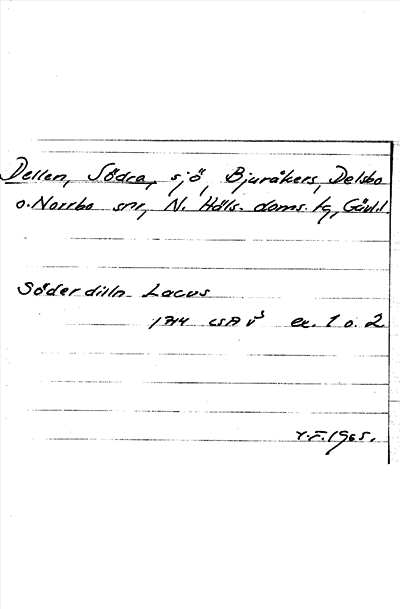 Dellen, Södra, sjö, Bjuråkers, Delsbo
o. Norrbo snr, N. Häls. doms. fg, Gävl.l.
Söderdilln Lacus
1744 LSA V³ ex. 1 o. 2
1965.